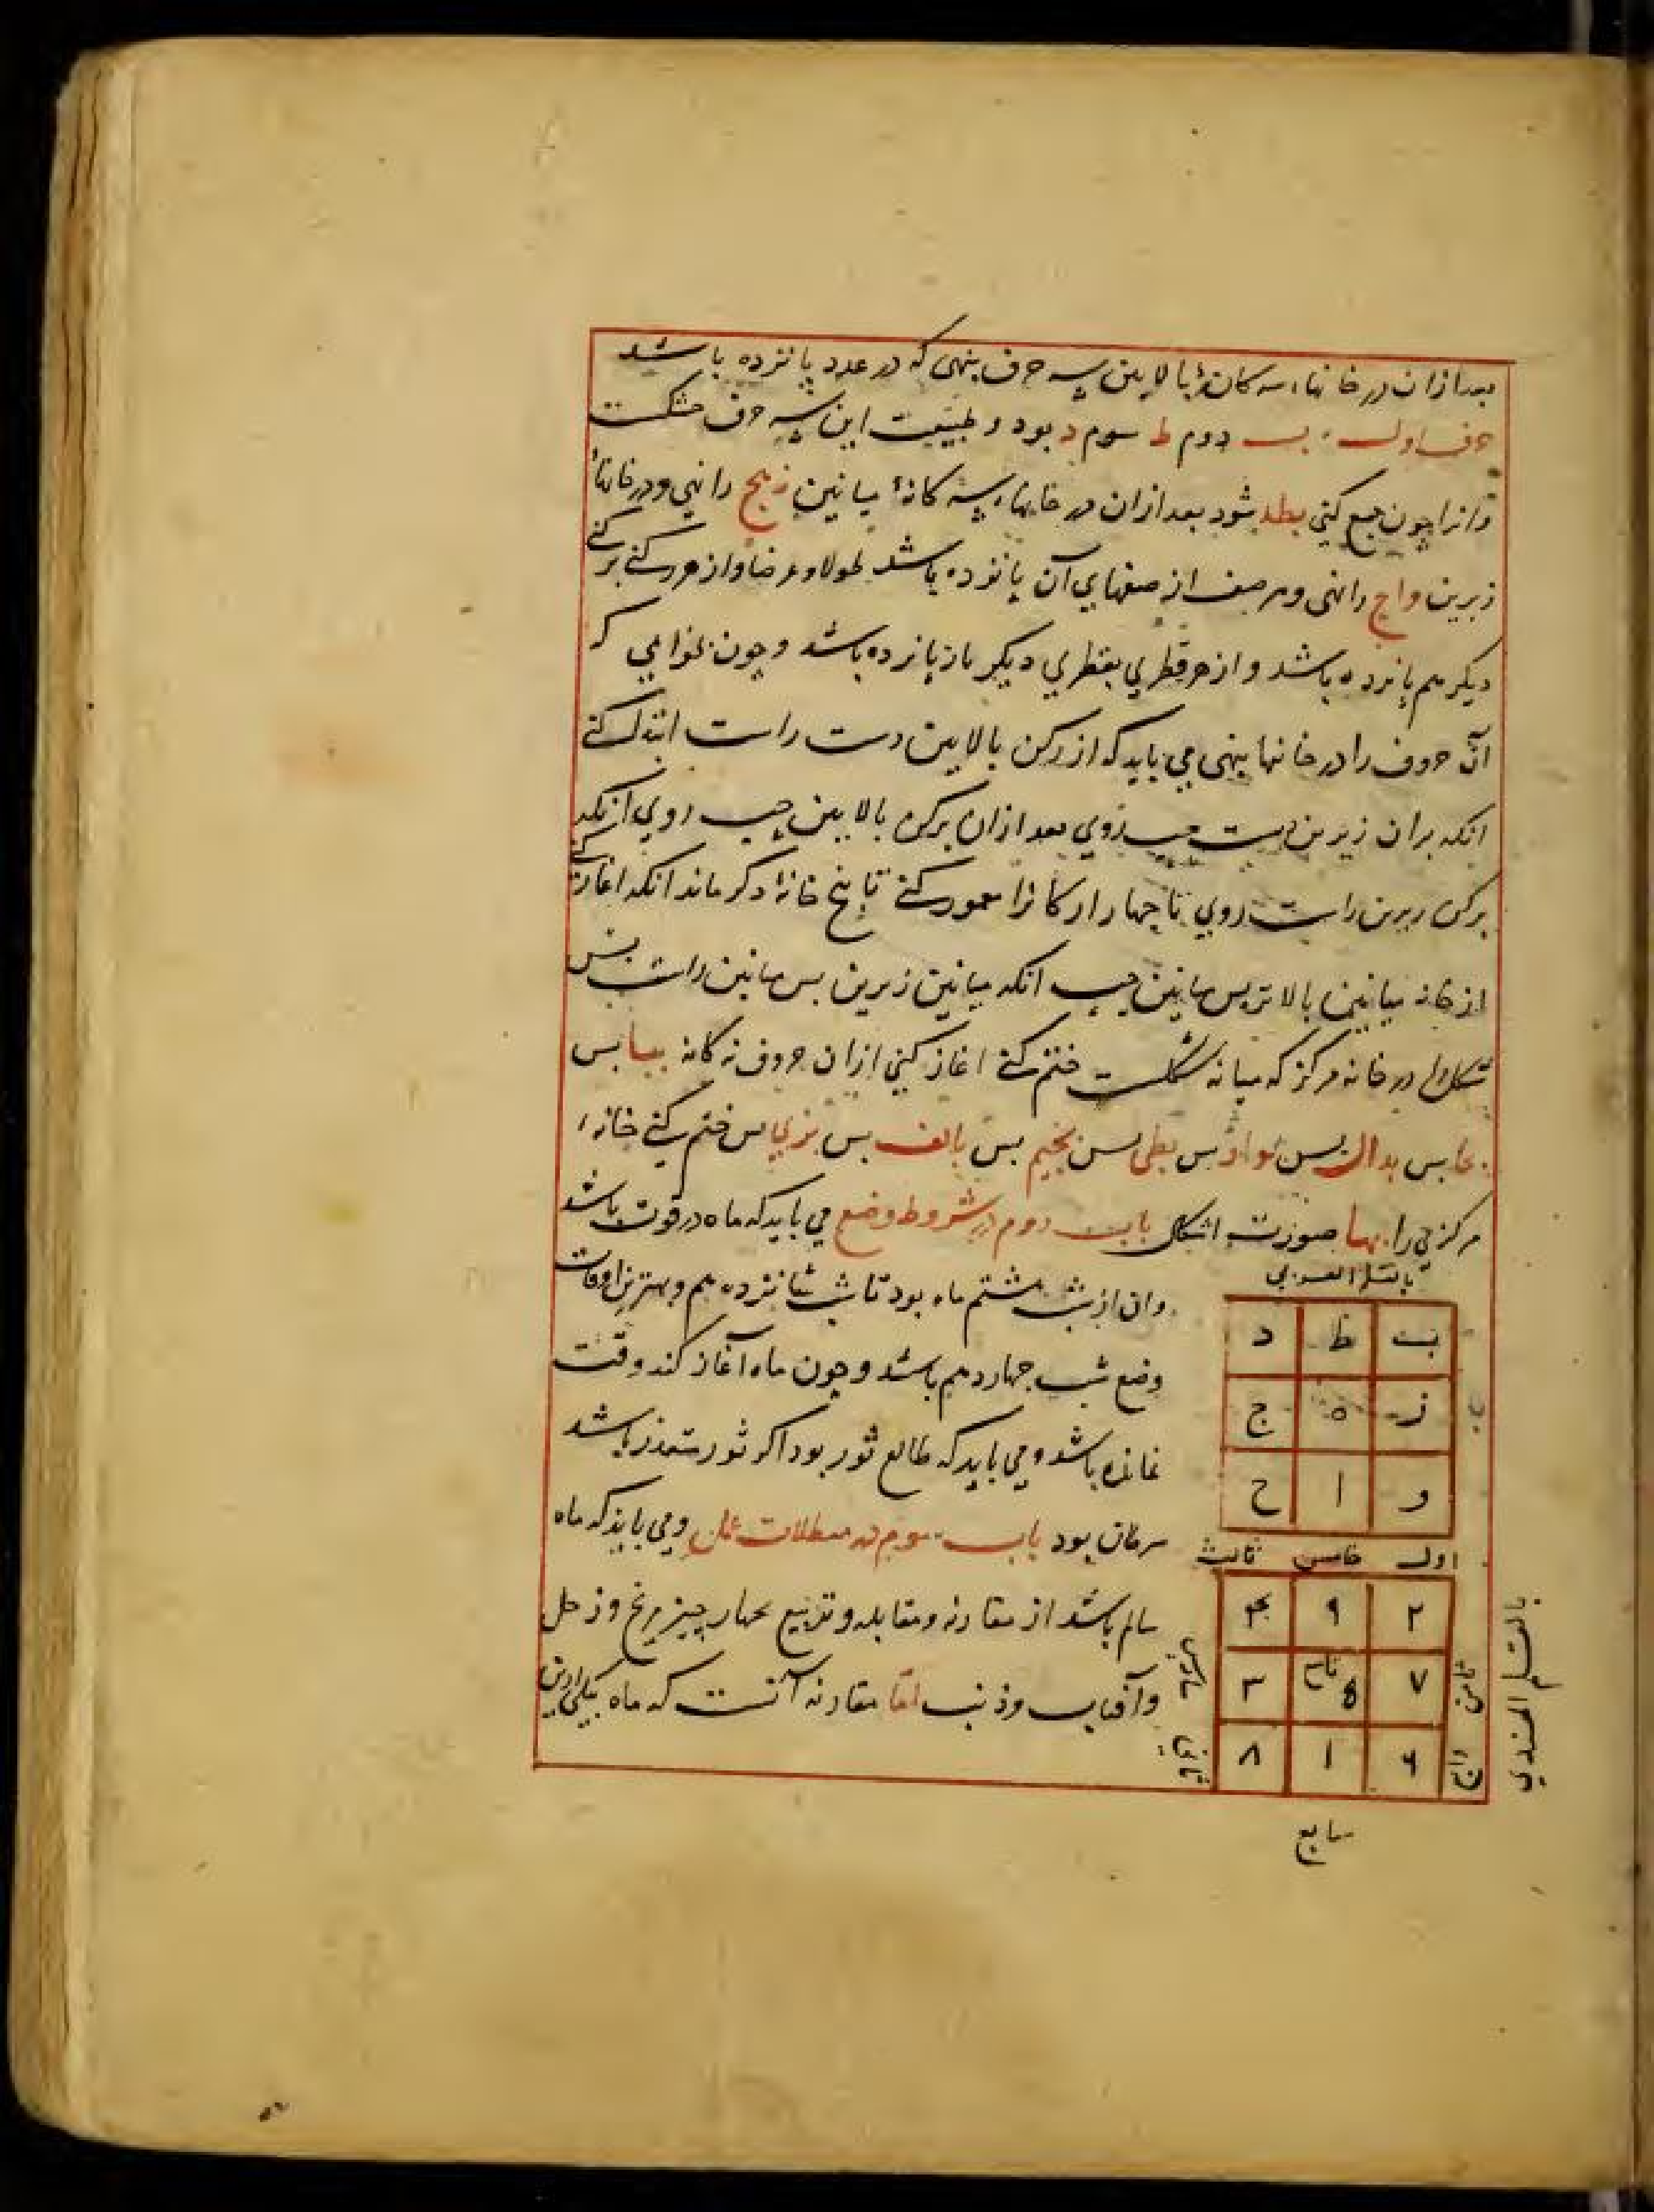 بعد ازان در خانهاء سه کانۀ بالایین سه حرف بنهی که در عدد پانزده باشد
حرف اول ب دوم ط سوم د بود و طبیعت این سه حرف خشکست
وانرا چون جمع کنی بطد شود بعد ازان در خانهاء سه کانۀ میانین زهج را نهی و در خانهاء
زیرین واح را نهی و هر صف از صفهای آن پانزده باشد طولا و عرضا و از هر رکنی برکنی
دیکر هم پانزده باشد و از هر قطری بقطری دیکر باز پانزده باشد و چون خواهی که
آن حروف را در خانها بنهی می باید که از رکن بالایین دست راست ابتدا کنی
انکه بران زیرین دست چپ روی بعد ازان برکن بالایین چپ روی انکه
برکن زیرین راست روی تا چهار ارکانرا معمور کنی تا پنج خانۀ دکر ماند انکه اغاز کنی
از خانه میانین بالاتر پس میانین چپ انکه میانین زیرین بس میانین راست بس
شکل را در خانه مرکز که میانه شکلست ختم کنی اغاز کنی ازان حروف نه کانه ببا بس
بحا بس بدال بس بواو بس بطی بس بجیم بس بالف بس بزی بس ختم کنی خانه
مرکزی را بها صورت اشکال باب دوم در شروط وضع می باید که ماه در قوت باشد
بالقلم العربی
وان از شب هشتم ماه بود تا شب شانزده هم و بهترین اوقات
وضع شب چهاردهم باشد و چون ماه آغاز کند وقت
باشد و می باید که طالع ثور بود اکر ثور متعذر باشد
سرطان بود باب سوم در مبطلات عمل و می باید که ماه
سالم باشد از مقارنه و مقابله و تربیع بچهار چیز مریخ و زحل
وآفتاب وذنب اما مقارنه آنست که ماه بیکی ازین
ب ط د
ز ه ج
و ا ح
اول خامس ثالث
۲ ۹ ۴
۷ ۵ ۳
۶ ۱ ۸
ثامن
تاسع
سادس
رابع
ثانی
سابع
بالقلم الهندی